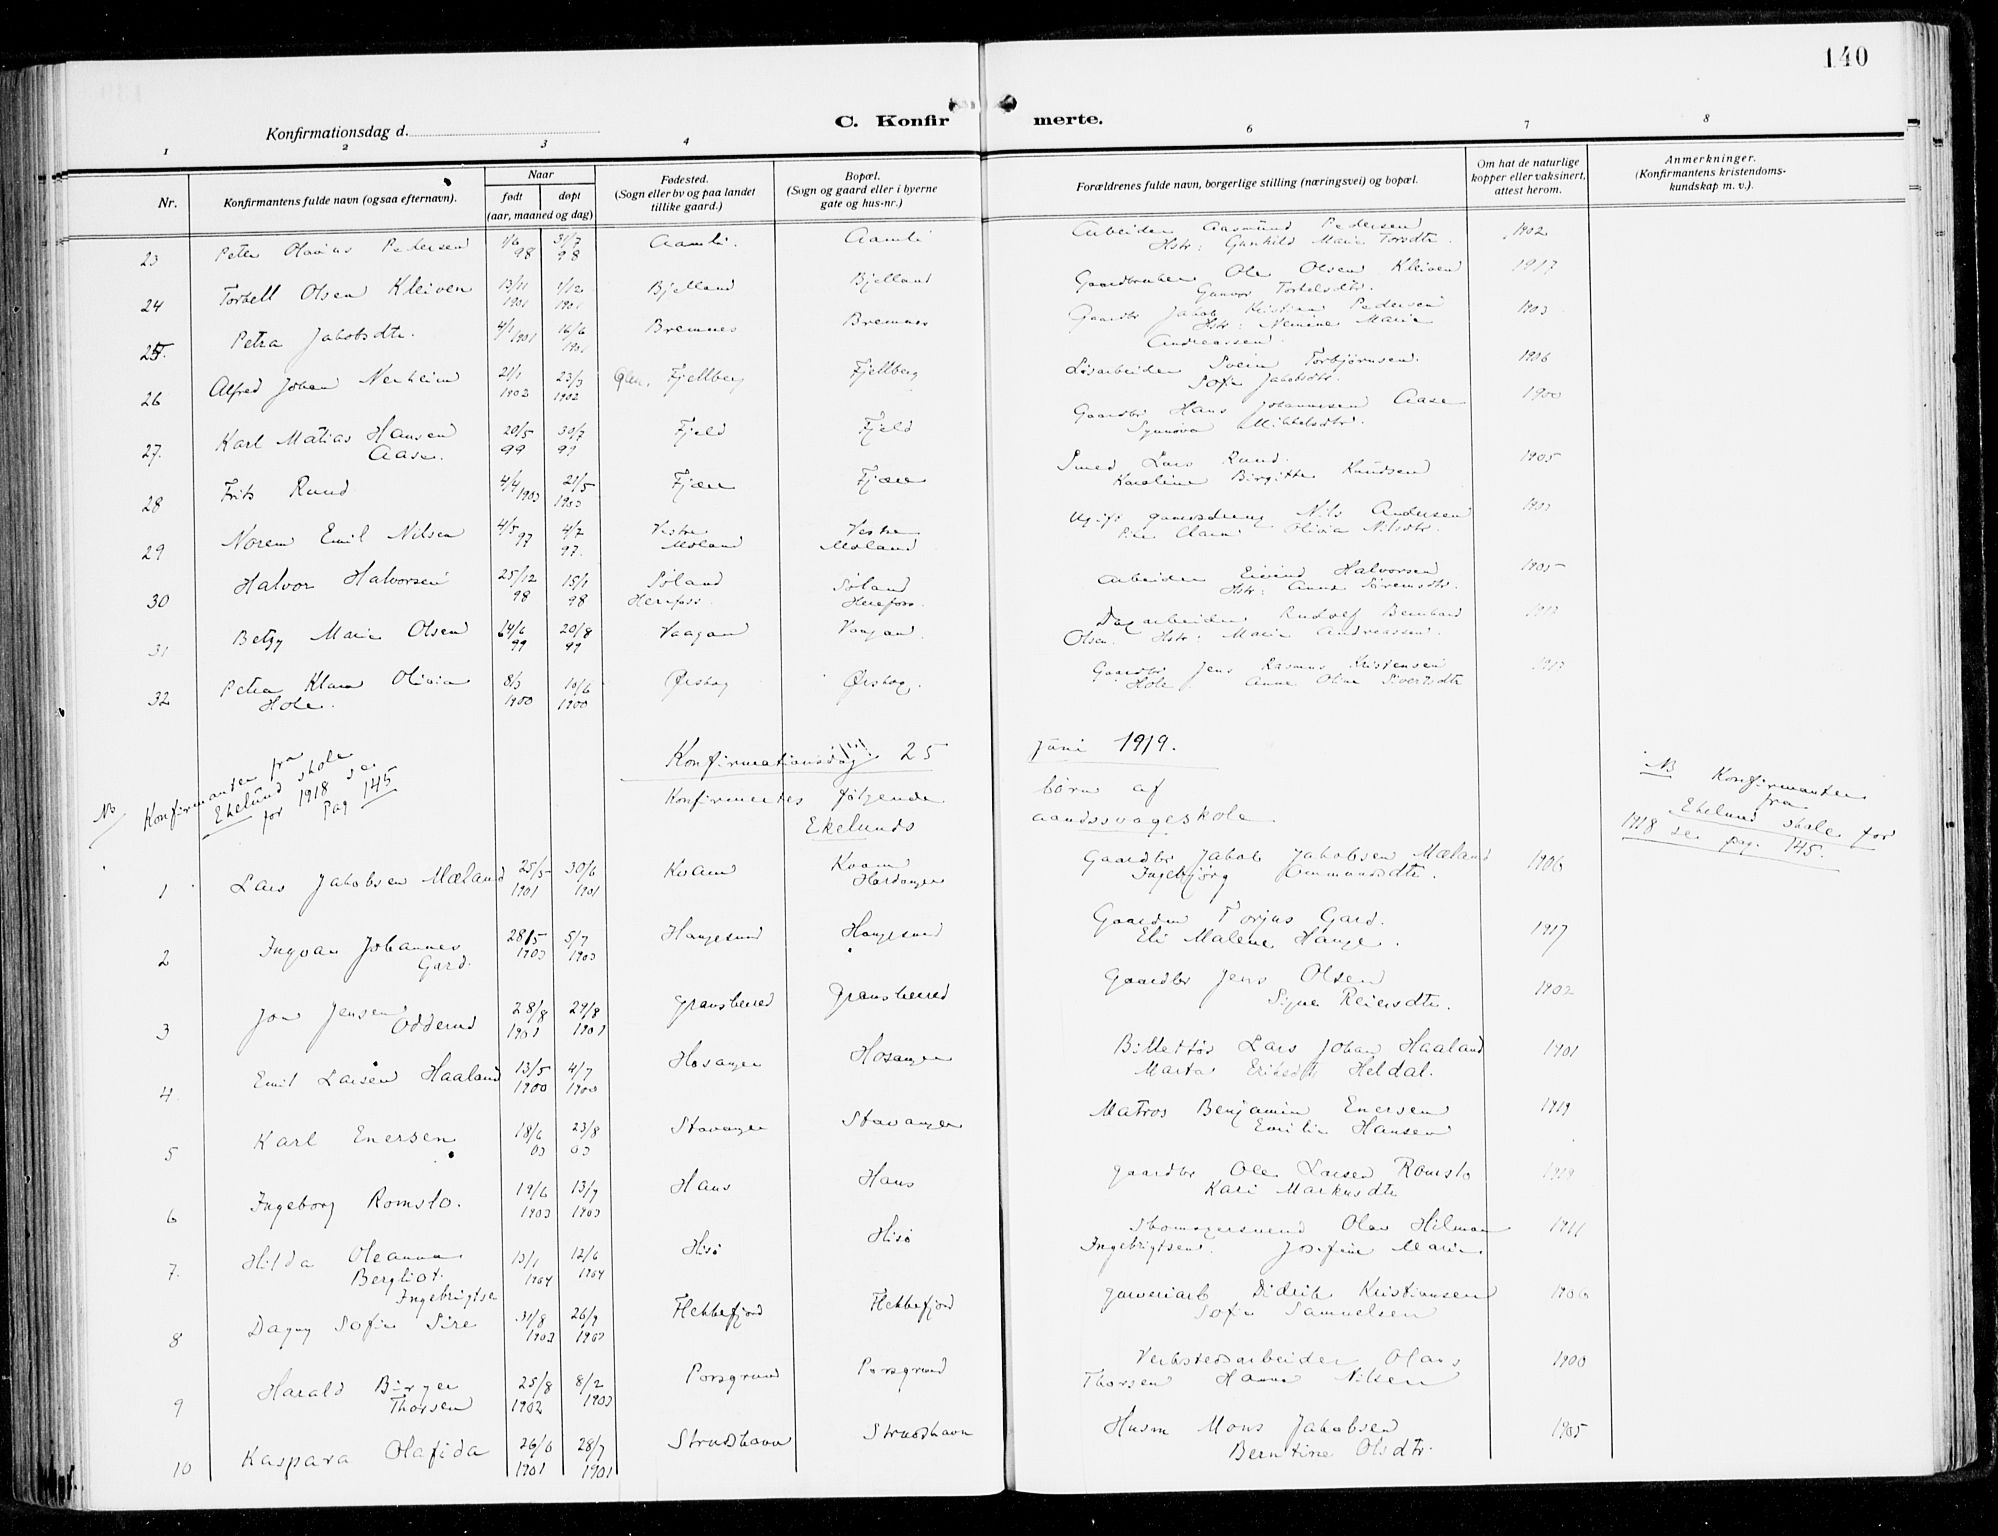 140
C. Konfirmerte.
Konfirmationsdag d.
1 2 3 4 6 7 8
Nr.
Konfirmantens fulde navn (ogsaa efternavn).
Naar
født døpt
(aar, maaned og dag)
Fødested.
(Sogn eller by og paa landet
tillike gaard.)
Bopæl.
(Sogn og gaard eller i byerne
gate og hus-nr.)
Forældrenes fulde navn, borgerlige stilling (næringsvei) og bopæl.
Om hat de naturlige
kopper eller vaksinert,
attest herom.
Anmerkninger.
(Konfirmantens kristendoms-
kundskap m. v.).
23 Peter Olavus Pedersen 1/6 98 31/7 98 Aamli. Aamli Arbeider Aasmund Pedersen 1902
Hstr: Gunhild Marie Torsdtr.
24 Torkell Olsen Kleiven 13/11 1901 1/12 1901 Bjelland Bjelland Gaardbruker Ole Olsen Kleiven 1917
Gunvor Torkelsdtr.
25. Petra Jakobsdtr. 4/1 1901 16/6 1901 Bremnes Bremnes Gaardbr Jakob Kristian Pedersen 1903
Hstr: Marie
Andreassen.
26 Alfred Johan Nerheim 21/1 1902 23/3 1902 Ølen, Fjellberg Fjellberg Løsarbeider Svein Torbjørnsen. 1916
Sofie Jakobsdtr.
27. Karl Matias Hansen 20/5 99 30/7 99 Fjeld Fjeld Gaardbr Hans Johannesen Aase 1900
Aase. Synnøva Mikkelsdtr.
28 Frits Rund 4/4 1903 21/5 1903 Fjære Fjære Smed Lars Rund. 1905
Karoline Birgitte Knudsen
29 Norem Emil Nilsen 4/5 97 4/7 97. Vestre Moland Vestre Moland Ugift gaardsdreng Nils Andersen
Olivia Nilsdtr.
30 Halvor Halvorsen 25/12 98 15/1 98 Søland Herefoss. Søland Herefoss. Arbeider Eivind Halvorsen 1905
Hstr: Anne Sørensdtr.
31 Betzy Marie Olsen 14/6 99 20/8 99 Vaagan Vaagan. Dagarbeider Rudolf Bernhard
Olsen. Hstr: Marie Andreassen.
32 Petra Klara Olivia 8/3 1900 10/6 1900 Ørskog Ørskog. Gaardbr Jens Rasmus Kristensen
Hole. Hole. Anne Oline Sivertsdtr
Konfirmationsdag 25 juni 1919.
Konfirmertes følgende børn af
Ekelunds aandssvageskole
NB Konfirmanter fra
Ekelund skole
for 1918 se
Pag 145
NB Konfirmanter
fra
Ekelund skole for
1918 se pag. 145.
1 Lars Jakobsen Mæland 25/5 1901 30/6 1901 Kvam Kvam Hardanger Gaardbr Jakob Jakobsen Mæland 1906
Ingebjørg
2 Ingvar Johannes 28/5 1903 5/7 1903 Haugesund Haugesund Gaardm Torjus Gard. 1917
Gard. Eli Malene Hauge.
3 Jon Jensen 28/8 1901 29/8 1901 Gransherred Gransherred Gaardbr Jens Olsen 1902
Odderud Signe Reiersdtr.
4 Emil Larsen Haaland 13/5 1900 4/7 1900 Hosanger Hosanger Billettør Lars Johan Haaland 1901
Marta Eriksdtr Heldal.
5 Karl Enersen 18/6 03 23/8 03 Stavanger Stavanger Matros Benjamin Enersen 1919
Emilie Hansen
6 Ingeborg Romslo. 19/6 1903 13/9 1903 Haus Haus gaardbr Ole Larsen Romslo 1919
Kari Markusdtr
7. Hilda Oleanna 13/1 1904 12/6 1904 Hisø Hisø Skomagersvend Olav Hilman 1911
Bergliot. Ingebrigtsen. Josefine Marie
Ingebrigtsen
8 Dagny Sofie Sire 31/8 1903 26/9 1903 Flekkefjord Flekkefjord garveriarb Didrik Kristiansen 1906
Sofie Samuelsen
9 Harald Birger 25/8 1902 8/2 1903 Porsgrund Porsgrund Verkstedsarbeider Olaus 1900
Thorsen Thorsen Hanna Nilsen
10 Kaspara Olafida 26/6 1901 28/7 1901 Strudshavn Strudshavn Husm Mons Jakobsen 1905
Berntine Olsdtr.